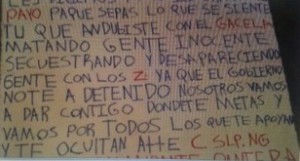 PAYO PAQUE SEPAS LO QUE SE SIENTE
TU QUE ANDUBISTE CON EL GACELA
MATANDO GENTE INOCENTE
SECUESTRANDO Y DESAPARECIENDO
GENTE CON LOS Z. YA QUE EL GOBIERNO
NOTE A DETENIDO NOSOTROS VAMOS
A DAR CONTIGO DONDETE METAS Y
VAMOS POR TODOS LOS QUE TE APOYAN
Y TE OCULTAN ATTE C SLP. NG